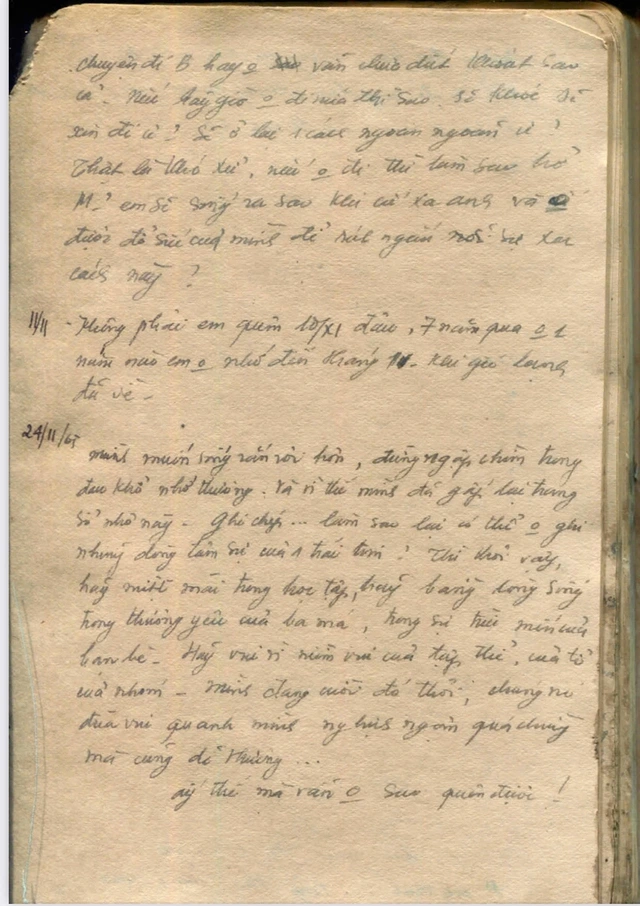 chuyện đi B hay o vẫn chưa dứt khoát sao
cả. Nếu bây giờ o đi nữa thì sao. Sẽ khóc sẽ
xin đi à? Sẽ ở lại 1 cách ngoan ngoãn à?
Thật là khó xử, nếu o đi thì làm sao hở
M? em sẽ sống ra sao khi cứ xa anh và
được để rút ngắn sự xa
cách này?
11/11 - Không phải em quên 10/XI đâu, 7 năm qua o 1
năm nào em o nhớ đến tháng 11. Khi gió lạnh
đã về -
24/11/65
mình muốn sống rắn rỏi hơn, đừng ngập chìm trong
đau khổ nhớ thương. Và vì thế mình đã gấp lại trang
sổ nhỏ này - Ghi chép... làm sao lại có thể o ghi
những dòng tâm sự của 1 trái tim? Thì thôi vậy,
hãy miệt mài trong học tập, hãy bằng lòng sống
trong thương yêu của ba má, trong sự trìu mến của
bạn bè - Hãy vui vì niềm vui của tập thể, của tổ
của nhóm - Mình đang cười đó thôi, chúng nó
đùa vui quanh mình nghịch ngợm quá chừng
mà cũng dễ thương...
ấy thế mà vẫn o sao quên được!